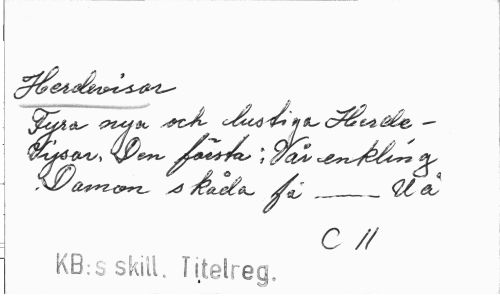 Herdevisor
Fyra nya och lustiga Herde-
Visor. Den första: Vår enkling
Damon skåda få —— U å
C 11
KB:s skill. Titelreg.